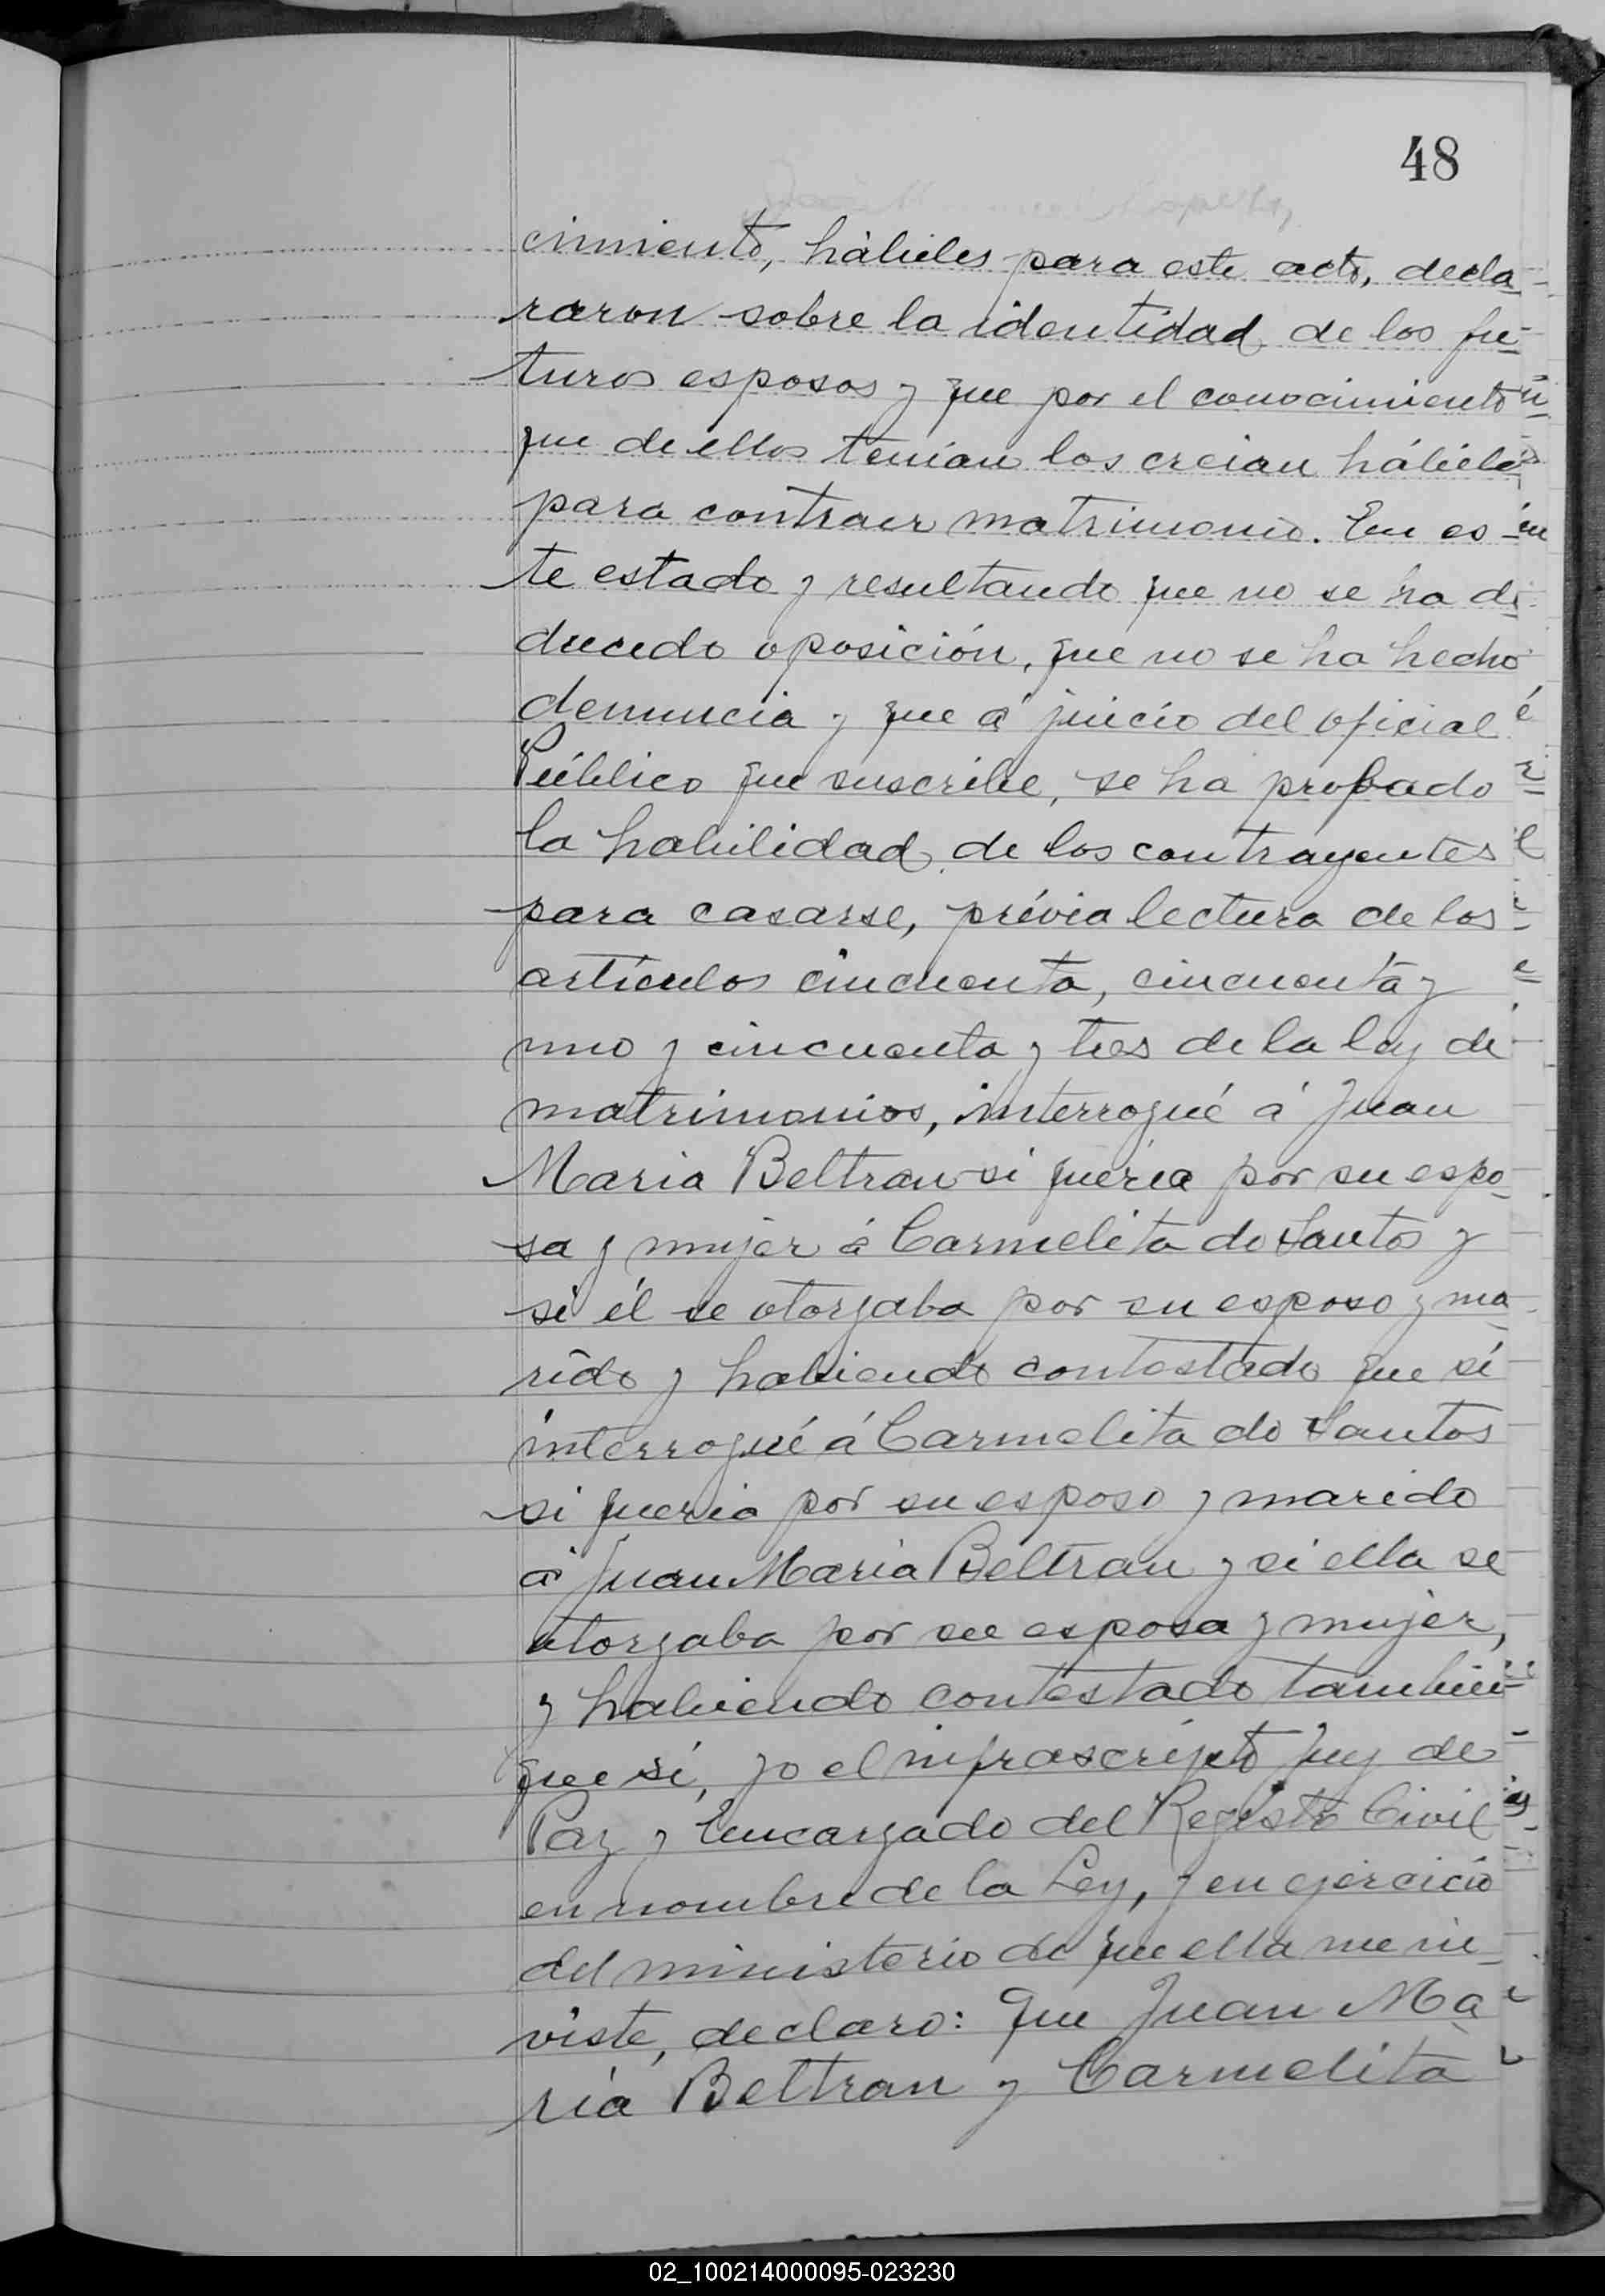 48
cimiento, hábiles para este acto, decla-
raron sobre la identidad de los fu-
turos esposos y que por el conocimiento
que de ellos tenían los creian hábiles
para contraer matrimonio. En es-
te estado y resultando que no se ha de
ducido oposición, que no se ha hecho
denuncia y que á juicio del oficial
Público que suscribe, se ha probado
la habilidad de los contrayentes
para casarse, prévia lectura de los
artículos cincuenta, cincuenta y
uno y cincuenta y tres de la ley de
matrimonios, interrogué á Juan
Maria Beltran si queria por su espo-
sa y mujer á Carmelita do Santos y
si él se otorgaba por su esposo y ma-
rido y habiendo contestado que sí
interrogué á Carmelita do Santos
si queria por su esposo y marido
á Juan Maria Beltran y si ella se
otorgaba por su esposa y mujer,
y habiendo contestado tambien
que sí, yo el infrascripto Juez de
Paz y Encargado del Registro Civil
en nombre de la Ley, y en ejercicio
del ministerio de que ella me in-
viste, declaro: Que Juan Ma-
ría Beltran y Carmelita
02_100214000095-023230